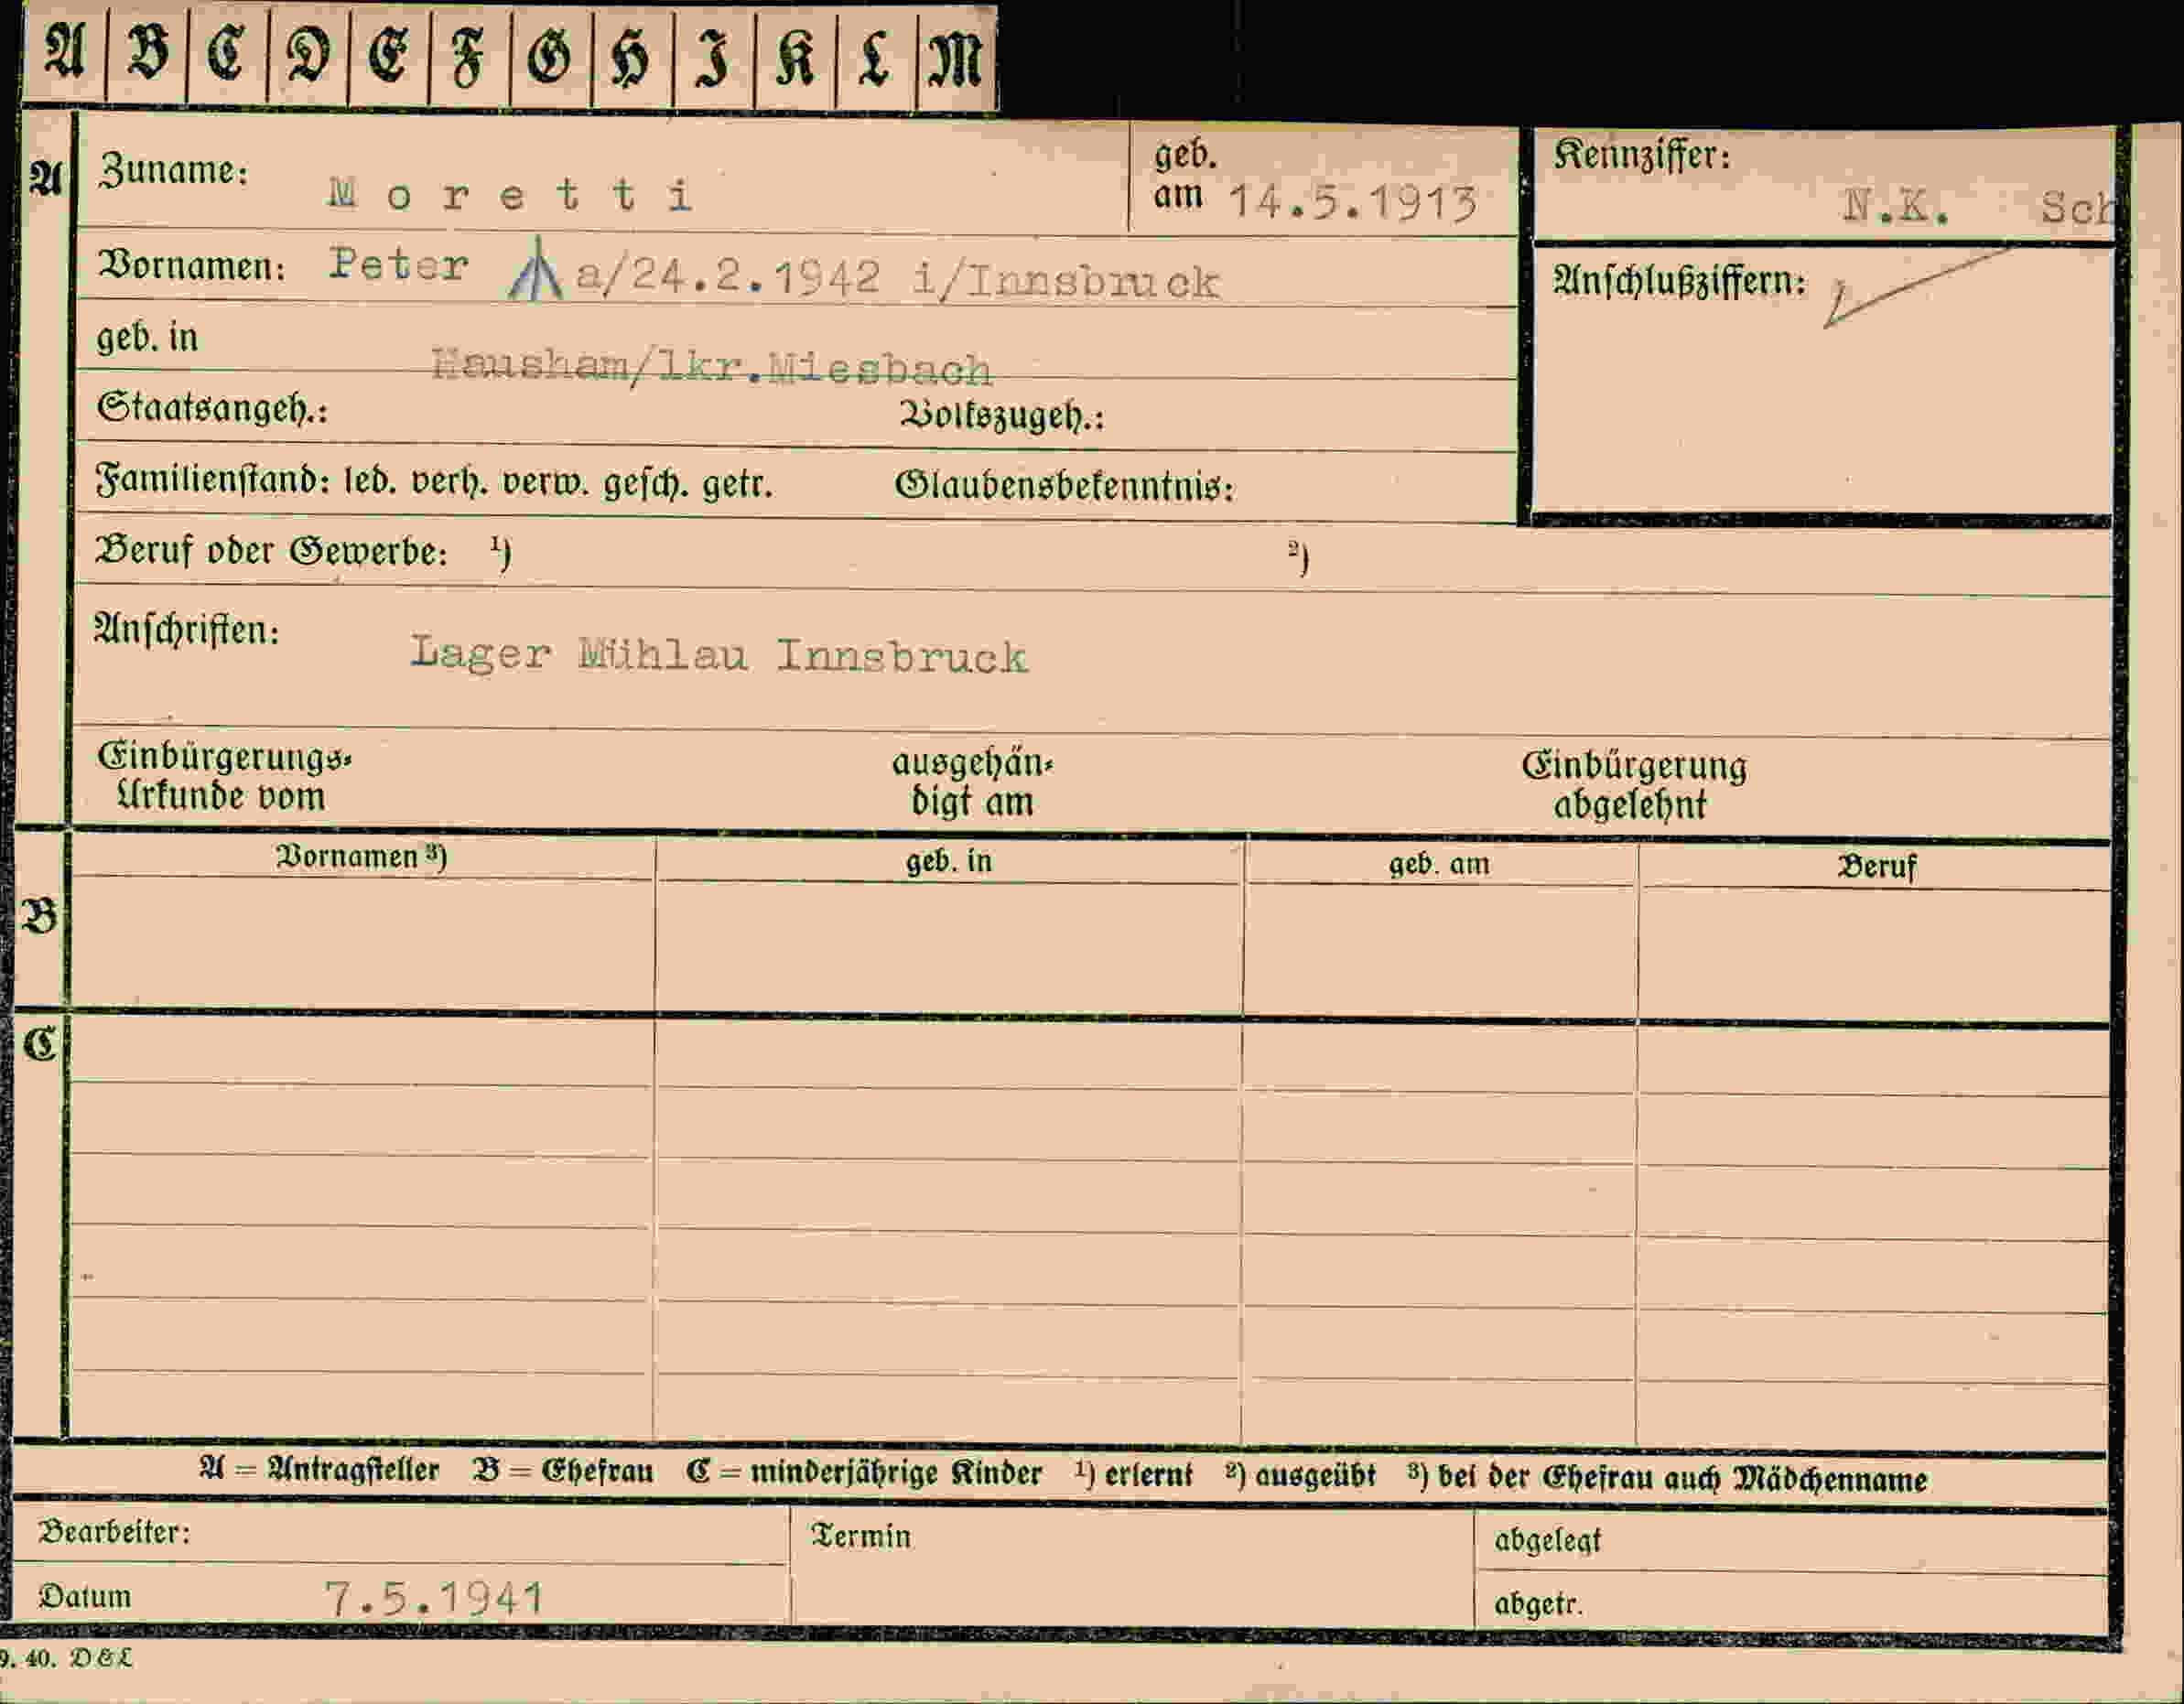 A B C D E F G H I K L M
A Zuname: Moretti geb. am 14.5.1913 Kennziffer: N.K. Sch
Vornamen: Peter a/24.2.1942 i/Innsbruck Anschlußziffern:
geb. in Hausham/lkr.Miesbach
Staatsangeh.: Volkszugeh.:
Familienstand: led. verh. verw. gesch. getr. Glaubensbekenntnis:
Beruf oder Gewerbe: ¹) ²)
Anschriften: Lager Mühlau Innsbruck
Einbürgerungs- ausgehän- Einbürgerung
Urkunde vom digt am abgelehnt
Vornamen ³) geb. in geb. am Beruf
B
C
A = Antragsteller B = Ehefrau C = minderjährige Kinder ¹) erlernt ²) ausgeübt ³) bei der Ehefrau auch Mädchenname
Bearbeiter: Termin abgelegt
Datum 7.5.1941 abgetr.
9. 40. D&L